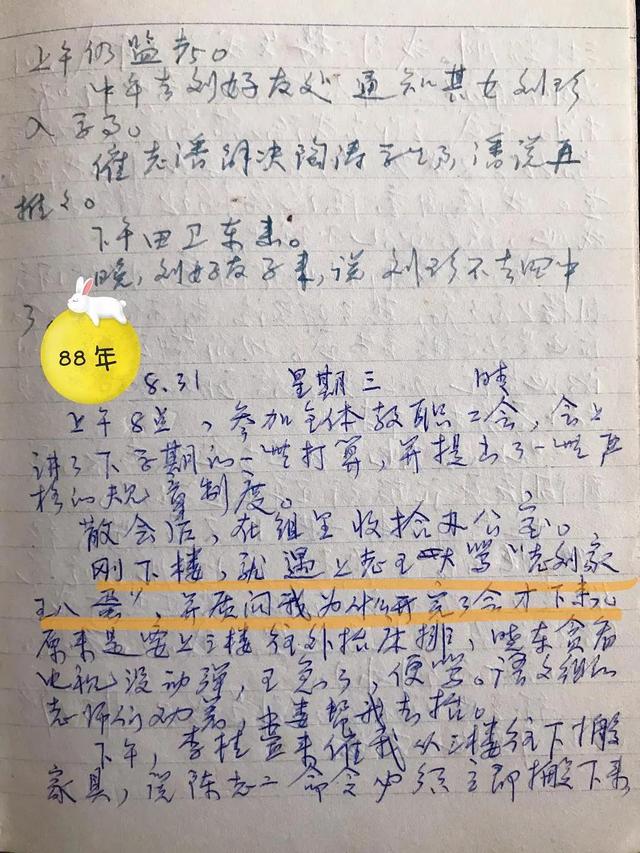 上午仍监考。
中午去刘好友处通知其女刘珍
入学事。
催老潘解决陶涛学生事,潘说再
推之。
下午田卫东来。
晚,刘好友子来,说刘珍不去四中
了
88年
8.31 星期三 晴
上午8点,参加全体教职工会,会上
讲了下学期的一些打算,并提出了一些严
格的规章制度。
散会后,在组里收拾办公室。
刚下楼,就遇上老王大骂"老刘家
王八蛋",并质问我为什么开完了会才下来。
原来是要上三楼往外抬床排,晓东贪看
电视没动弹,王急了,便骂。语文组的
老师们劝着,帮我去抬。
下午,李桂来催我从三楼往下搬
家具,说陈老二命令必须立即搬下来